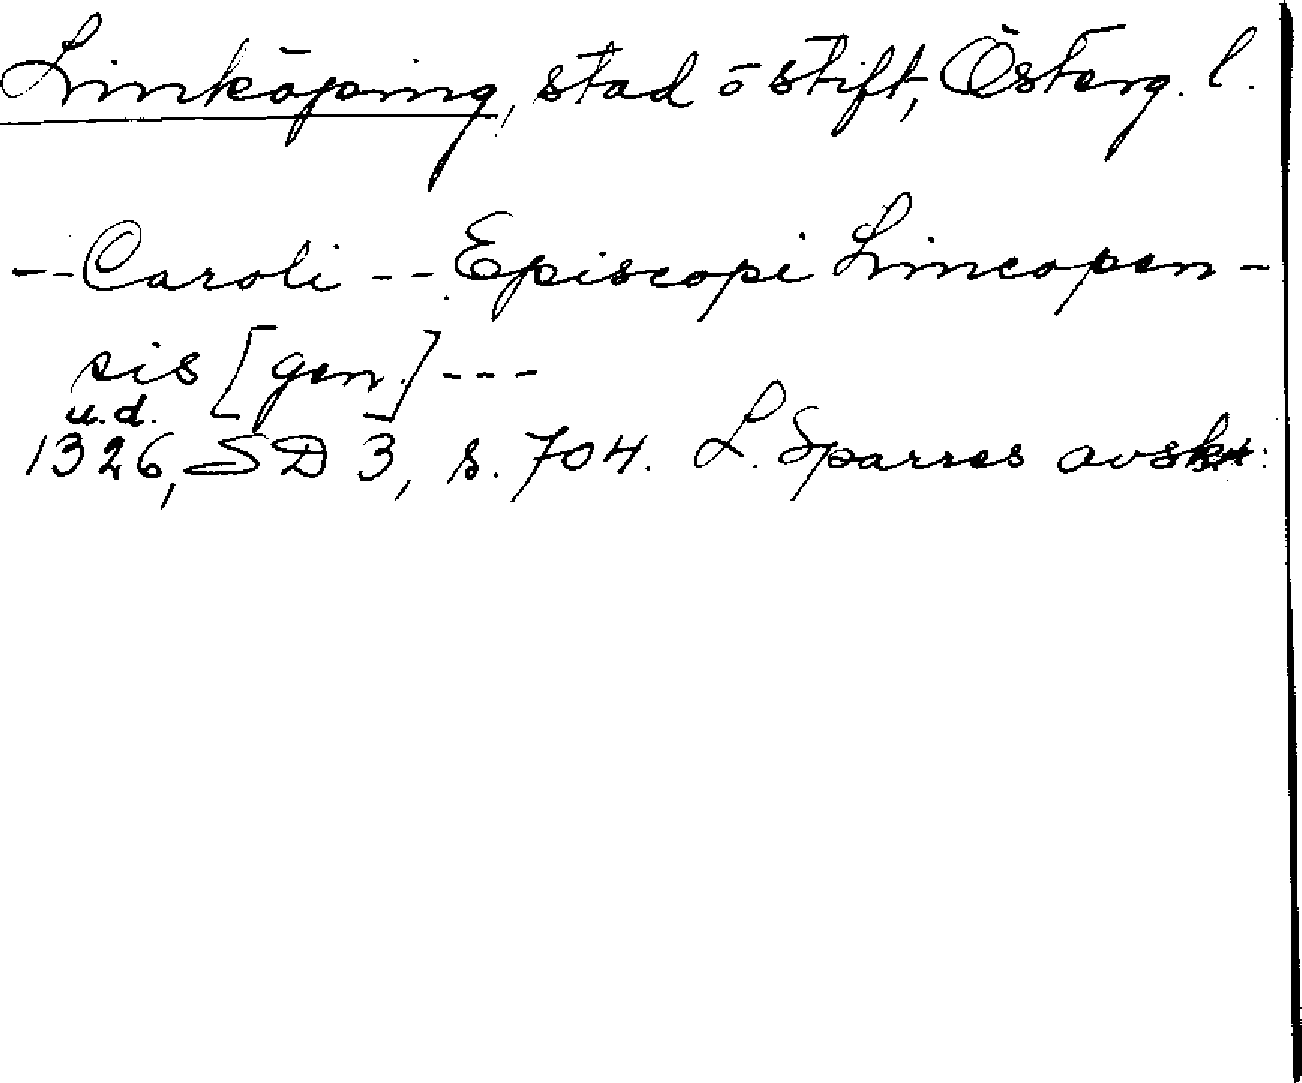 Linköping, stad o stift, Österg. l.
-- Caroli -- Episcopi Lincopen-
sis [gen.] ---
u.d.
1326, SD 3, s. 704. L. Sparres avskr: